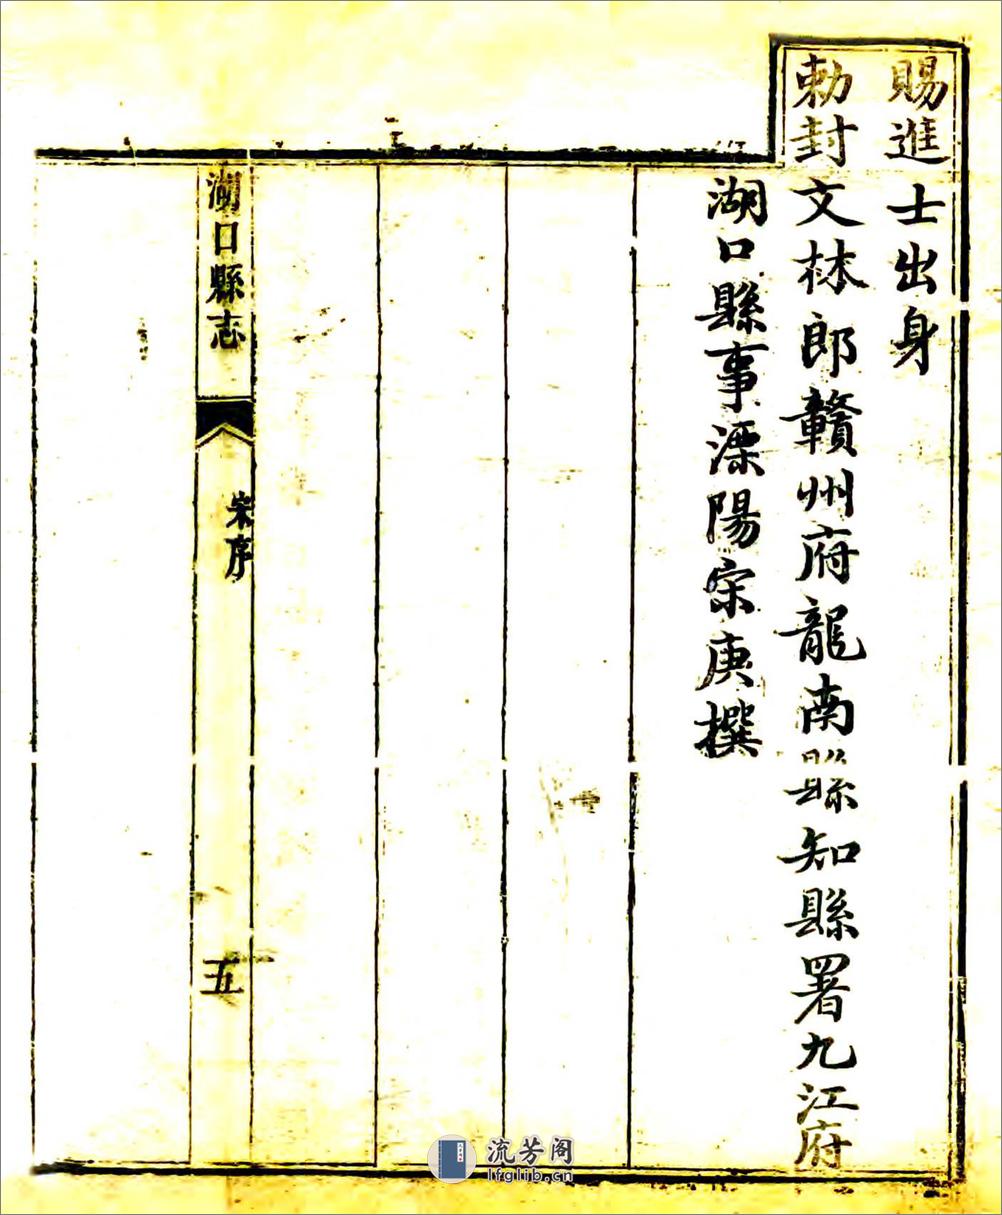 賜進士出身
勅封文林郎贛州府龍南縣知縣署九江府
湖口縣事溧陽宋庚撰
湖口縣志
宋序
五
流芳阁
lfglib.cn